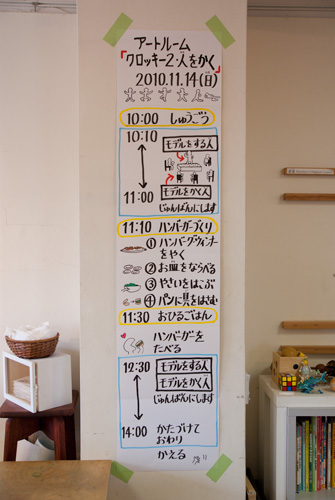 アートルーム
「クロッキー2・人をかく」
2010.11.14(日)
10:00 しゅうごう
10:10
モデルをする人
モデルをかく人
11:00 じゅんばんにします
11:10 ハンバーガーづくり
① ハンバーグ・ウィンナー
をやく
② お皿をならべる
③ やさいをはこぶ
④ パンに具をはさむ
11:30 おひるごはん
ハンバーガーを
たべる
12:30 モデルをする人
モデルをかく人
じゅんばんにします
14:00 かたづけて
おわり
かえる